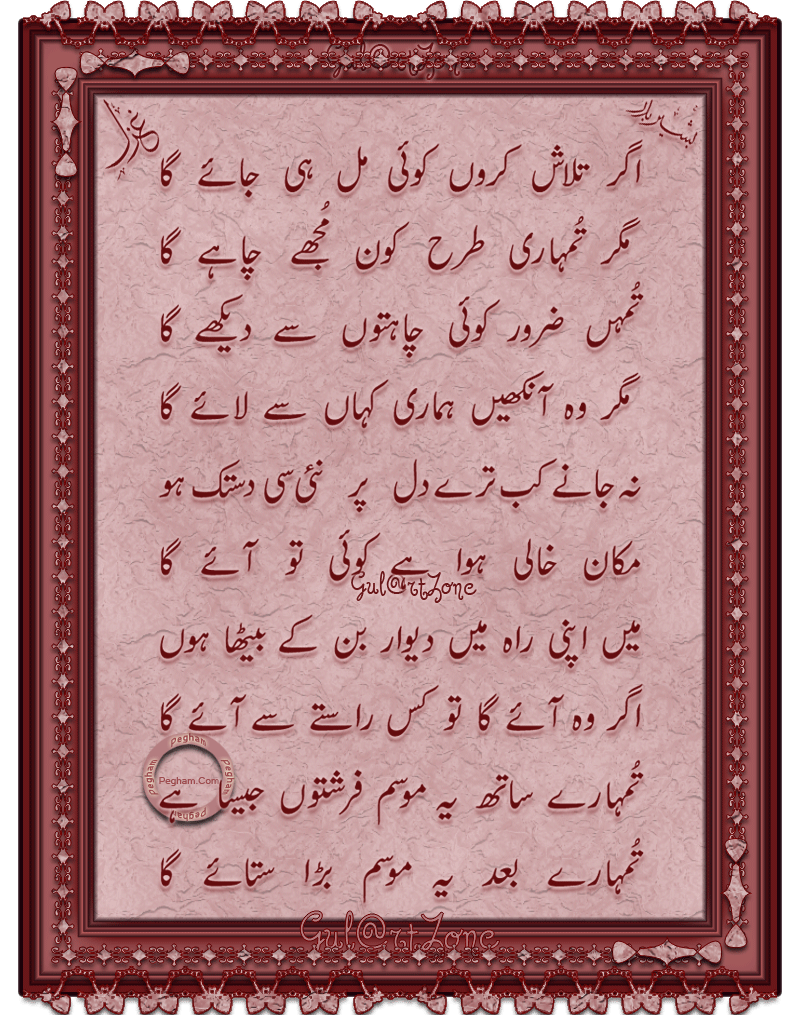 Gul@rtZone
غزل
بشیر بدر
اگر تلاش کروں کوئی مل ہی جائے گا
مگر تُمہاری طرح کون مُجھے چاہے گا
تُمہں ضرور کوئی چاہتوں سے دیکھے گا
مگر وہ آنکھیں ہماری کہاں سے لائے گا
نہ جانے کب ترے دل پر نئی سی دستک ہو
مکان خالی ہوا ہے کوئی تو آئے گا
Gul@rtZone
میں اپنی راہ میں دیوار بن کے بیٹھا ہوں
اگر وہ آئے گا تو کس راستے سے آئے گا
Pegham Pegham Pegham Pegham
Pegham.Com
تُمہارے ساتھ یہ موسم فرشتوں جیسا ہے
تُمہارے بعد یہ موسم بڑا ستائے گا
Gul@rtZone